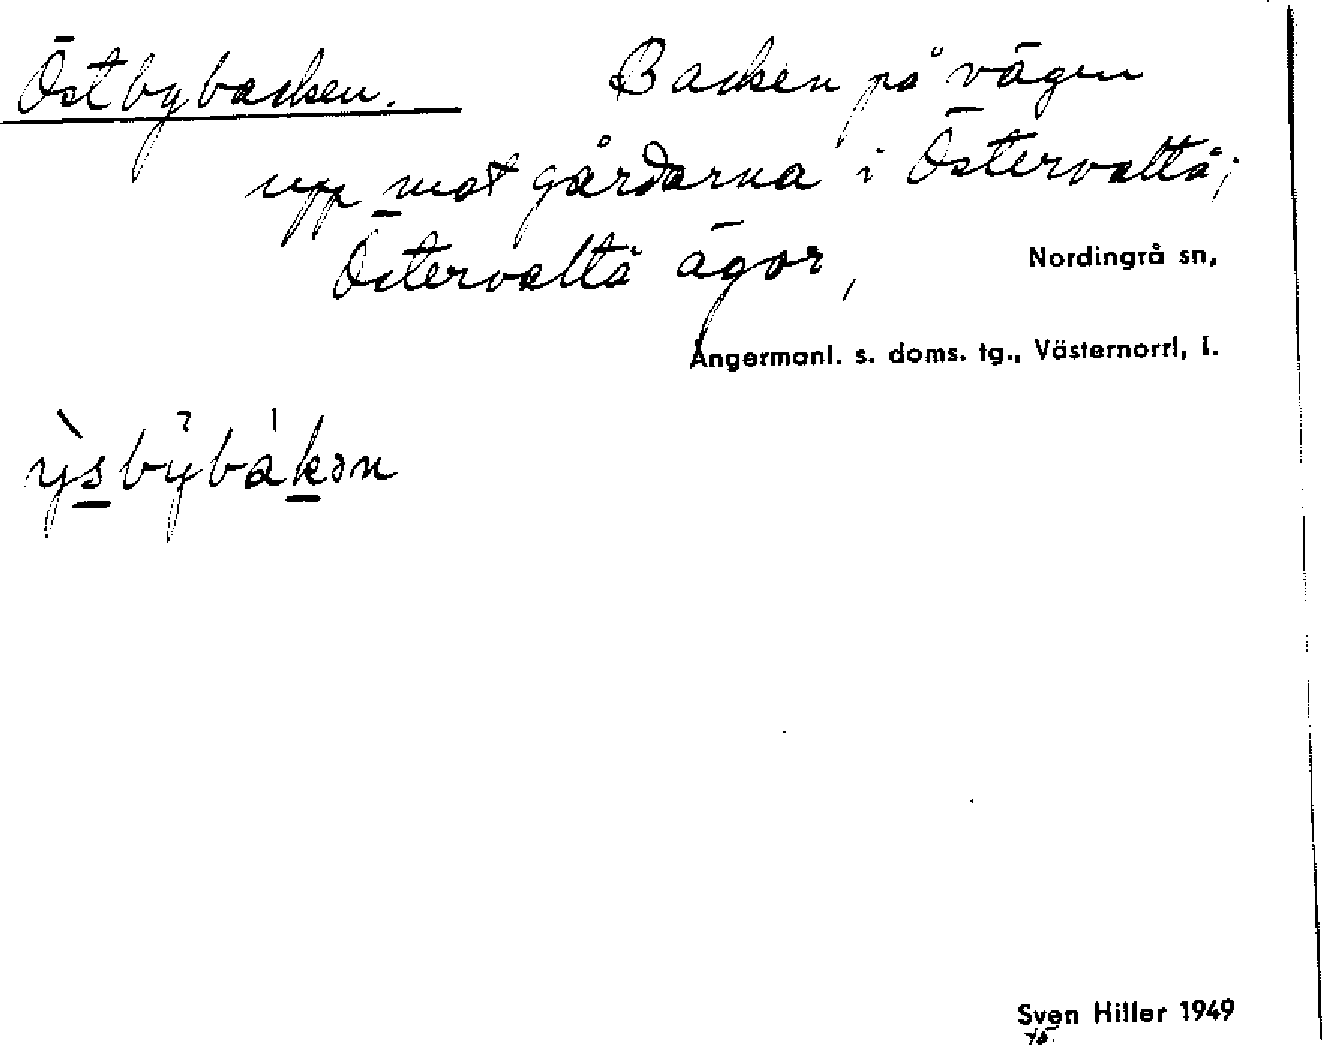 Östbybacken. Backen på vägen
upp mot gårdarna i Östervaltå;
Östervaltå ägor, Nordingrå sn,
Ångermanl. s. doms. tg., Västernorrl, l.
ysbybakən
Sven Hiller 1949